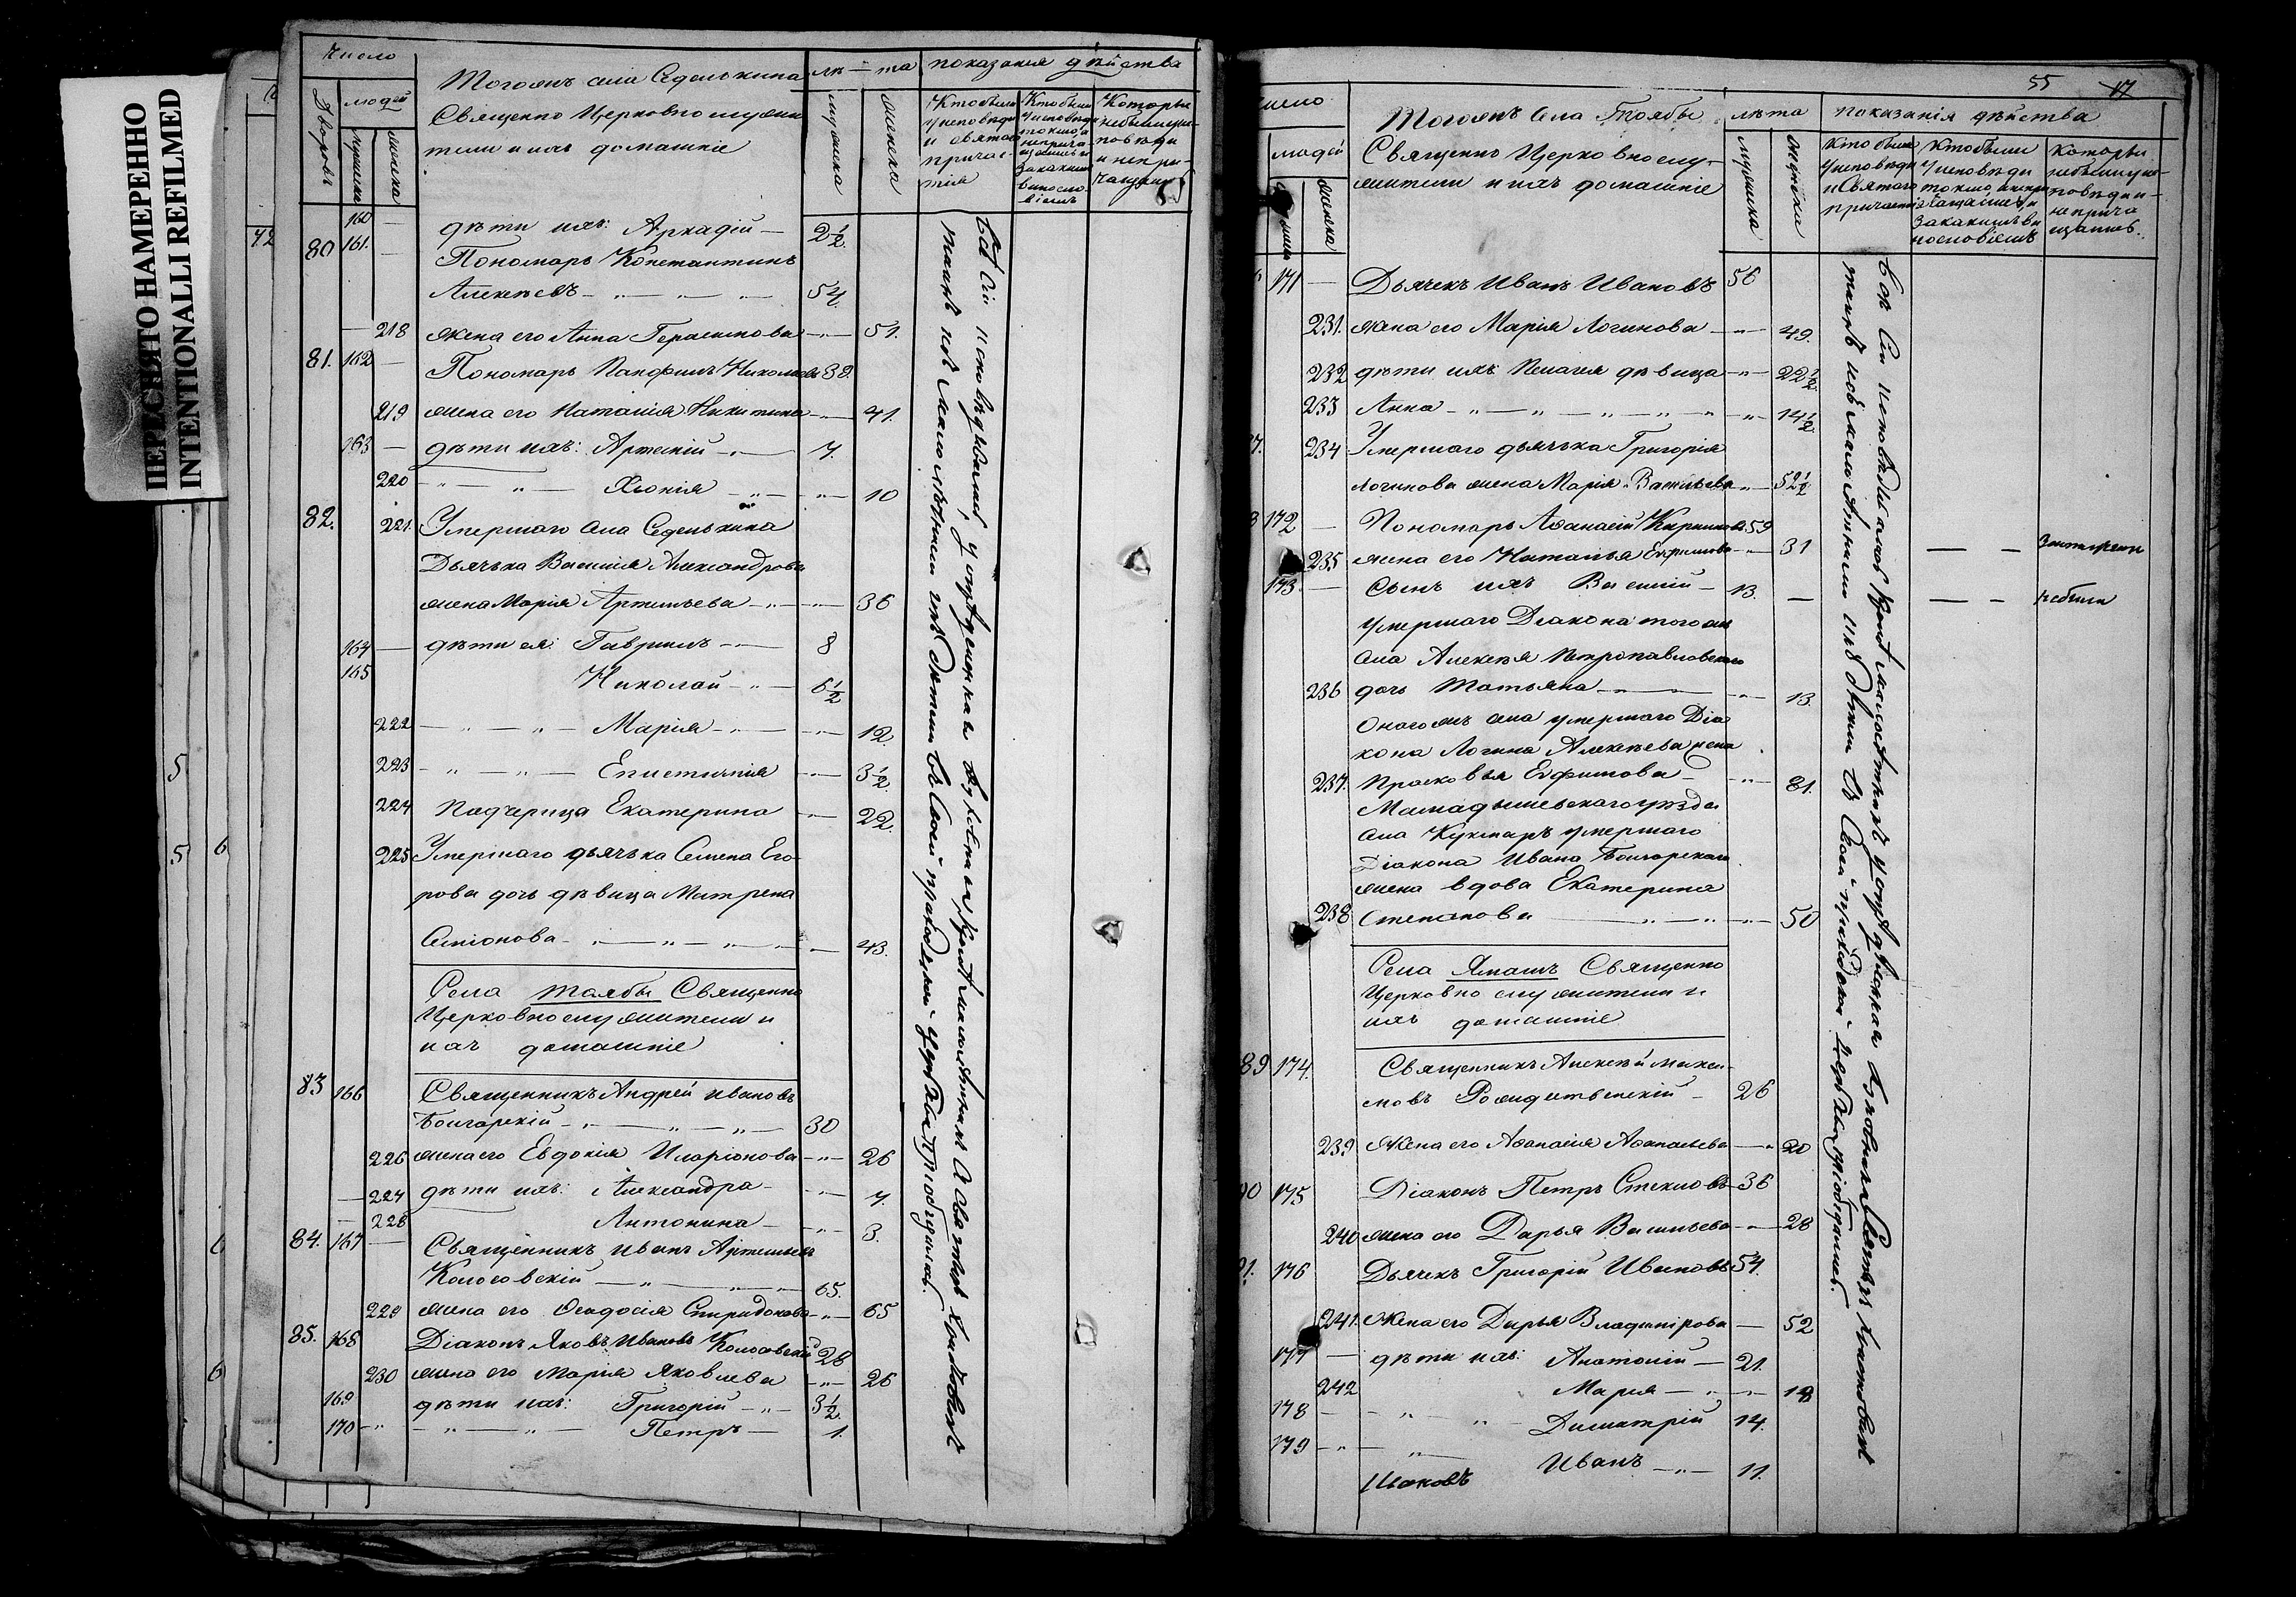 ПЕРЕСНЯТО НАМЕРЕННО
INTENTIONALLI REFILMED
Число
Дворовъ
людей
мужска
женска
Тогожъ села Седелькина
Священно Церковно служи
тели и ихъ домашніе
лѣ - та
мужска
женска
показанія дѣйства
Кто были
у исповѣди
и святаго
причас-
тія
Кто были
у исповѣди
токмо, а
не прича
щались и
за какимъ
винос ло-
віемъ
Которые
не были у ис-
повѣди
и не при-
чащались
160 — дѣти ихъ: Аркадій — 2½
80 161. — Пономарь Константинъ
Алексѣевъ — „ — „ — 54.
— 218 жена его Анна Герасимова — „ — 51.
81. 162 — Пономарь Панфилъ Николаевъ 38.
219 жена его Наталія Никитина — 41.
163 — дѣти ихъ: Артемій — „ — 7.
220 — „ — „ — Хіонія — „ — „ — 10
82. 221. Умершаго села Седелькина
Дьячька Василія Александрова
жена Марія Артемьева — „ — 36
164 — дѣти ея: Гавриилъ — „ — 8
165 Николай — „ — 6½
222 — „ — „ — Марія — „ — 12.
223 — „ — „ — Епистимія — 3½
224 Падчерица Екатерина — 22.
225 Умершаго дьячька Семена Его
рова дочь дѣвица Матрена
Симіонова — „ — „ — „ — 43.
Села Таябы Священно
Церковнослужители и
ихъ домашніе
83 166 Священникъ Андрей Ивановъ
Болгарскій — „ — „ — „ — 30
226 жена его Евдокія Иларіонова — „ — 26
— 227 дѣти ихъ: Александра — „ — 7.
— 228 Антонина — „ — 3.
84. 167 — Священникъ Иванъ Артемьевъ
Колосовскій — „ — „ — 65.
229 жена его Ѳеодосія Спиридонова — „ — 65
85. 168 Діаконъ Яковъ Ивановъ Колосовскій 28
230 жена его Марія Яковлева — „ — 26
169 дѣти ихъ: Григорій — „ — 3½
170 — „ — „ — „ — Петръ — 1.
Всѣ сіи исповѣдывались у опредѣленнаго духовника, кромѣ малолѣтнихъ, а святыхъ
таинъ какъ малолѣтніи такъ и дѣти въ своей приходской церкви пріобщились.
55 17
число
людей
женска
Тогожъ Села Таябы
Священно Церковнослу-
жители и ихъ домашніе
лѣта
мужска
женска
показанія дѣйства
Кто были
у исповѣди
и Святаго
причастія
Кто были
у исповѣди
токмо, а не при
чащались и
за какимъ ви
нословіемъ
Которые
не были у ис-
повѣди и
не прича
щались.
171 — Дьячекъ Иванъ Ивановъ 56
231. жена его Марія Логинова — „ — 49.
232 дѣти ихъ Пелагея дѣвица — „ — 22½
233 Анна — „ — „ — „ — „ — 14½
234 Умершаго дьячька Григорія
Логинова жена Марія Васильева — „ — 52½
172 — Пономарь Аѳанасій Кириловъ 59
235 жена его Наталья Ефимова — „ — 31
173. — Сынъ ихъ Василій — 13. — — — не были
умершаго Діакона того же
села Алексѣя Петропавловскаго
236 дочь Татьяна — „ — 13.
Оногожъ села умершаго Діа
кона Логина Алексѣева жена
237. Прасковья Евфимова — „ — 81.
Мамадышевскаго уѣзда
села Кукмаръ умершаго
Діакона Ивана Болгарскаго
жена вдова Екатерина
238 Степанова — „ — „ — 50
Села Ямашъ Священно
Церковно служители и
ихъ домашніе
89 174. Священникъ Алексѣй Макси-
мовъ Рождественскій — 26
239 Жена его Аѳанасія Аѳанасьева — „ 20
90 175 Діаконъ Петръ Стехновъ 36
240 жена его Дарья Васильева — 28
91. 176 Дьячекъ Григорій Ивановъ 54.
241. Жена его Дарья Владимірова — 52
177 — дѣти ихъ: Анатолій — 21.
242 Марія — „ — 18
178 — „ — „ — Димитрій 14.
179 — „ — „ — Иванъ — „ — 11.
Ивановъ
Всѣ Сіи исповѣдывались кромѣ малолѣтнихъ у опредѣленнаго духовника а Святыхъ
таинъ въ своей приходской церкви пріобщились.